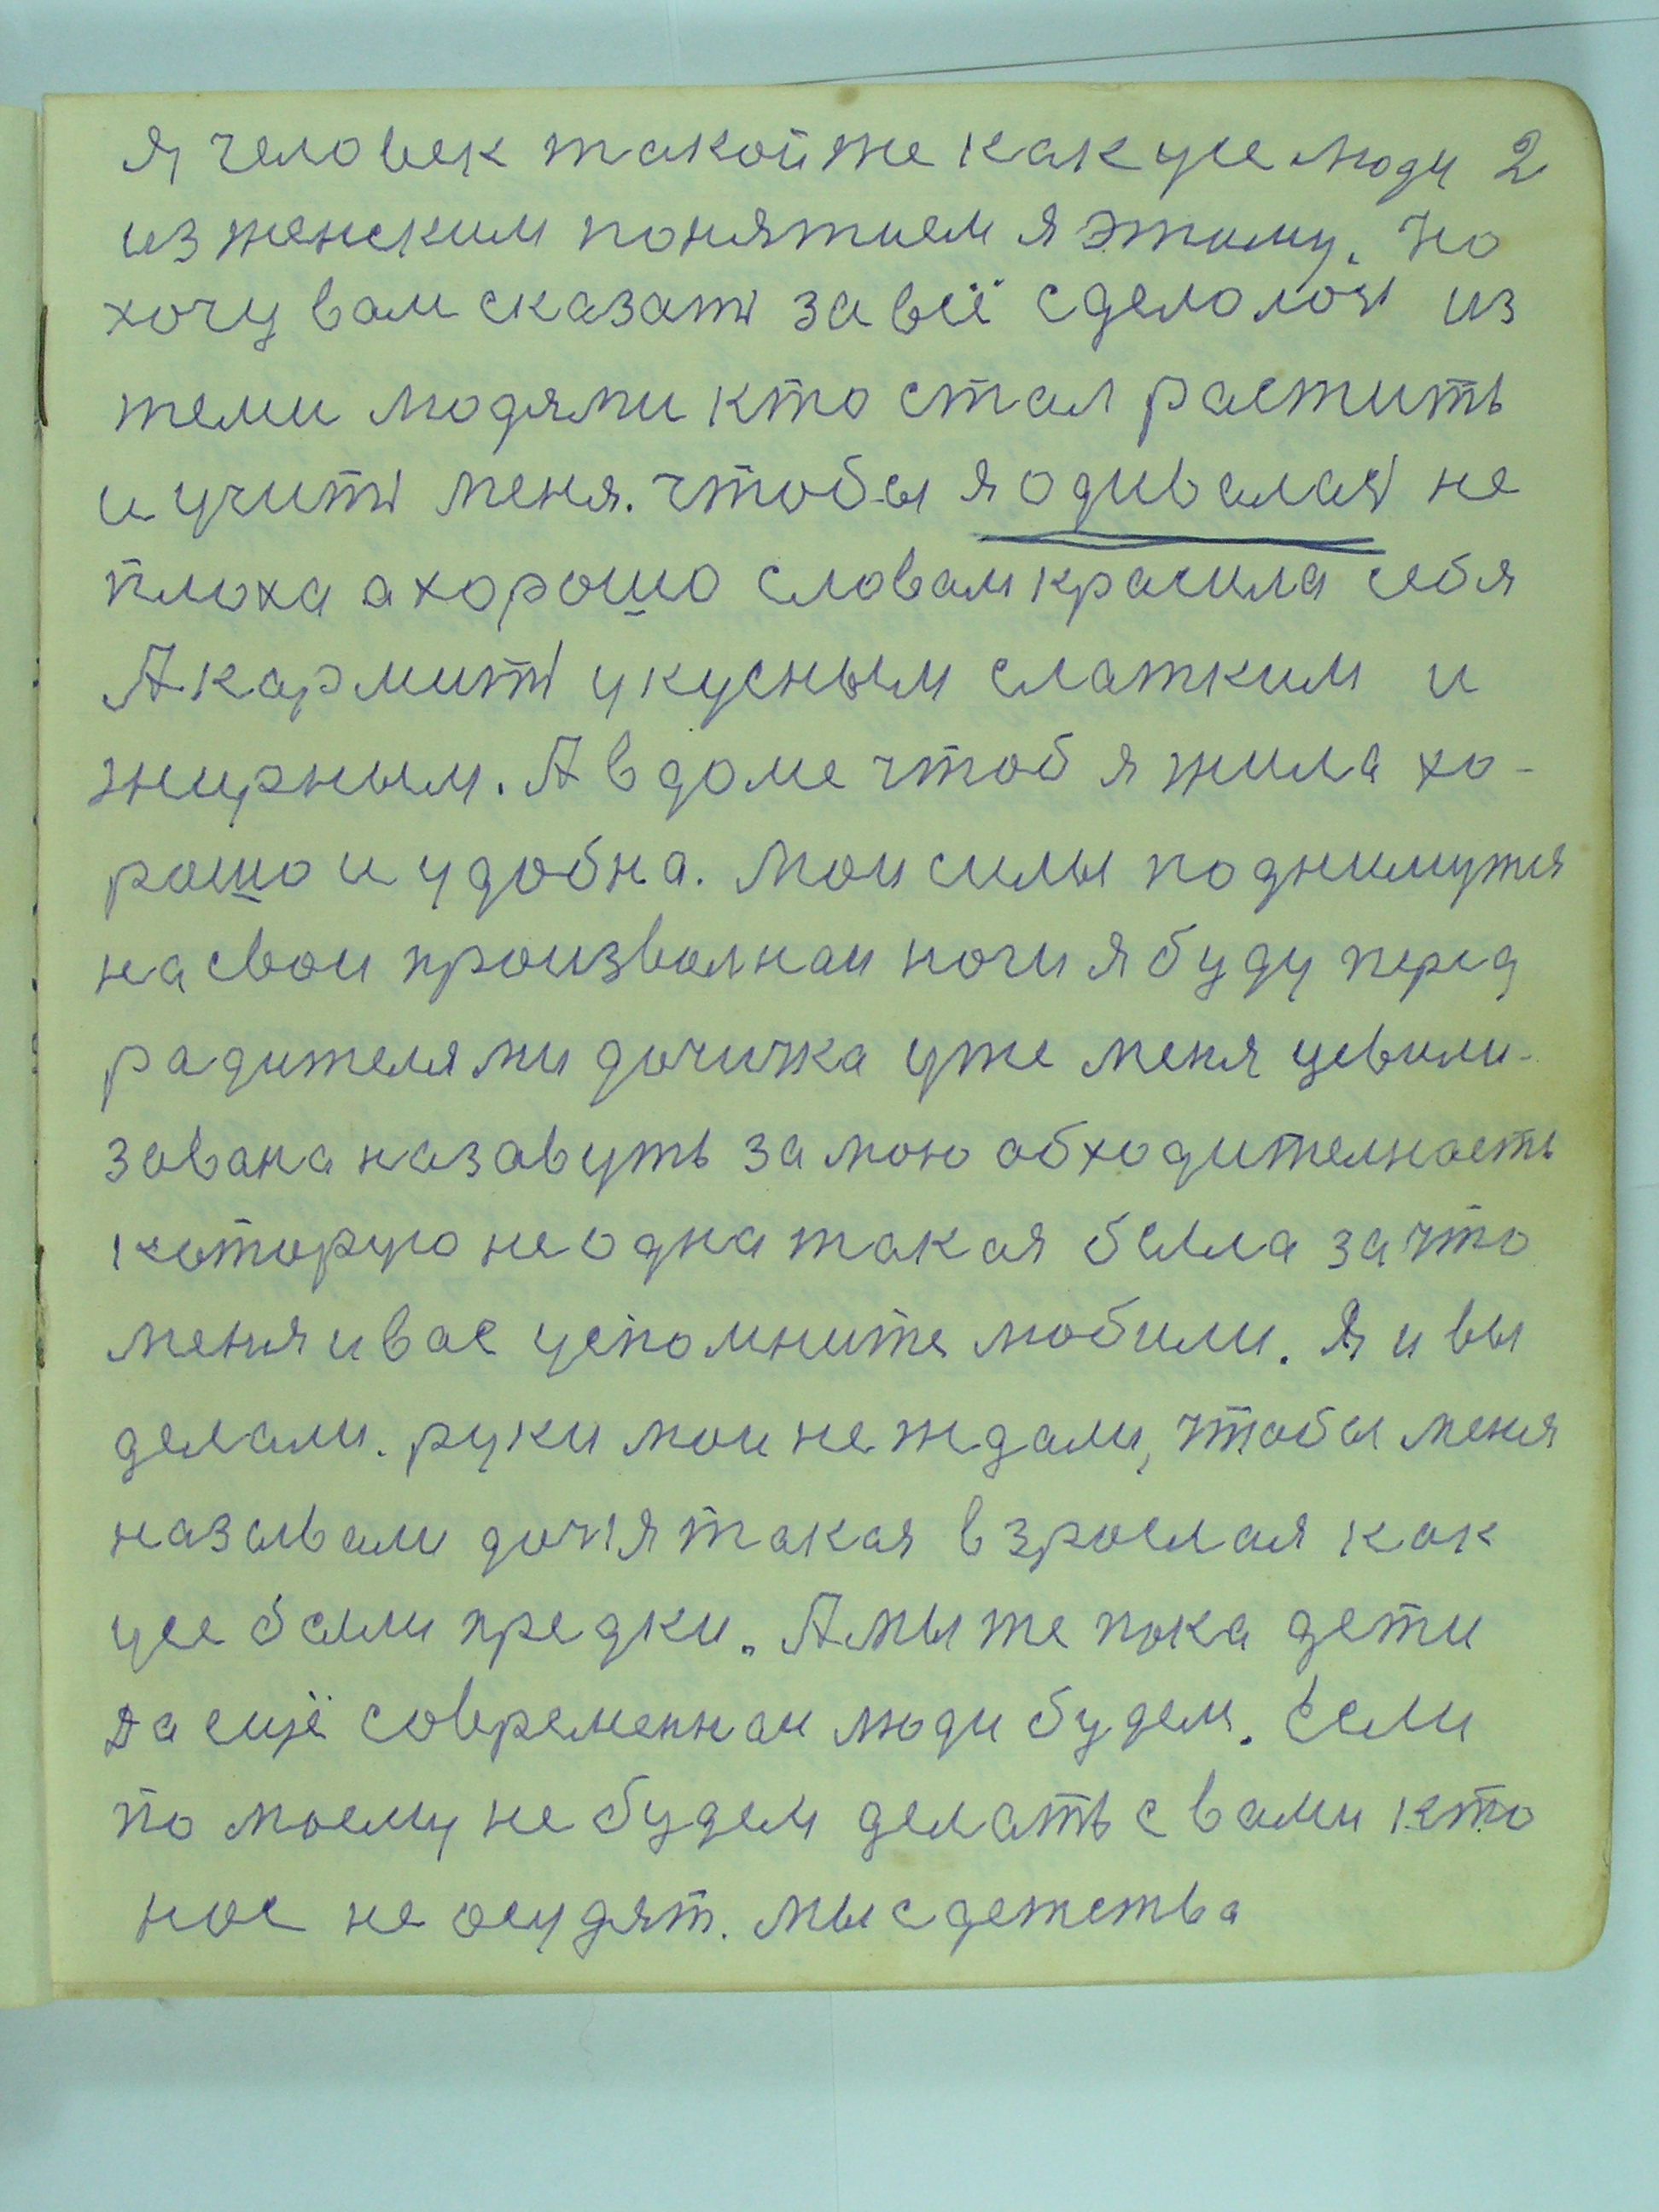 Я человек такой же как усе люди 2
из женским понятием я этому. Но
хочу вам сказать за всё сделолось из
теми людями кто стал растить
и учить меня. чтобы я одивалась не
плоха а хорошо словам красила себя
А кармить укусным слатким и
жирным. А в доме чтоб я жила хо-
рошо и удобна. Мои силы поднимутся
на свои произволнаи ноги я буду перед
радителями дочичка уже меня цевили-
зована назавуть за мою обходителность
которую не одна такая была за что
меня и вас успомните любили. Я и вы
делали. руки мои не ждали, чтобы меня
называли дочь я такая взрослая как
усе были предки. А мы же пока дети
Да ещё современнаи люди будем. Если
по моему не будем делать с вами кто
нас не осудят. мы с детства